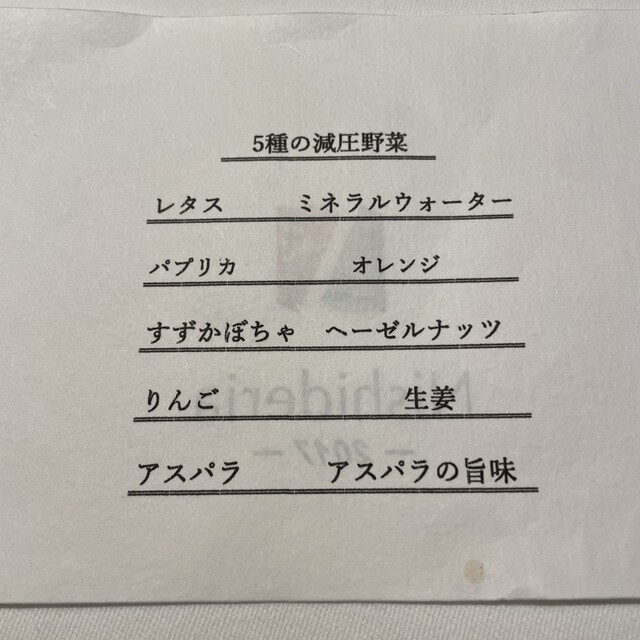 5種の減圧野菜
レタス ミネラルウォーター
パプリカ オレンジ
すずかぼちゃ ヘーゼルナッツ
りんご 生姜
アスパラ アスパラの旨味
Nishideria
— 2017 —